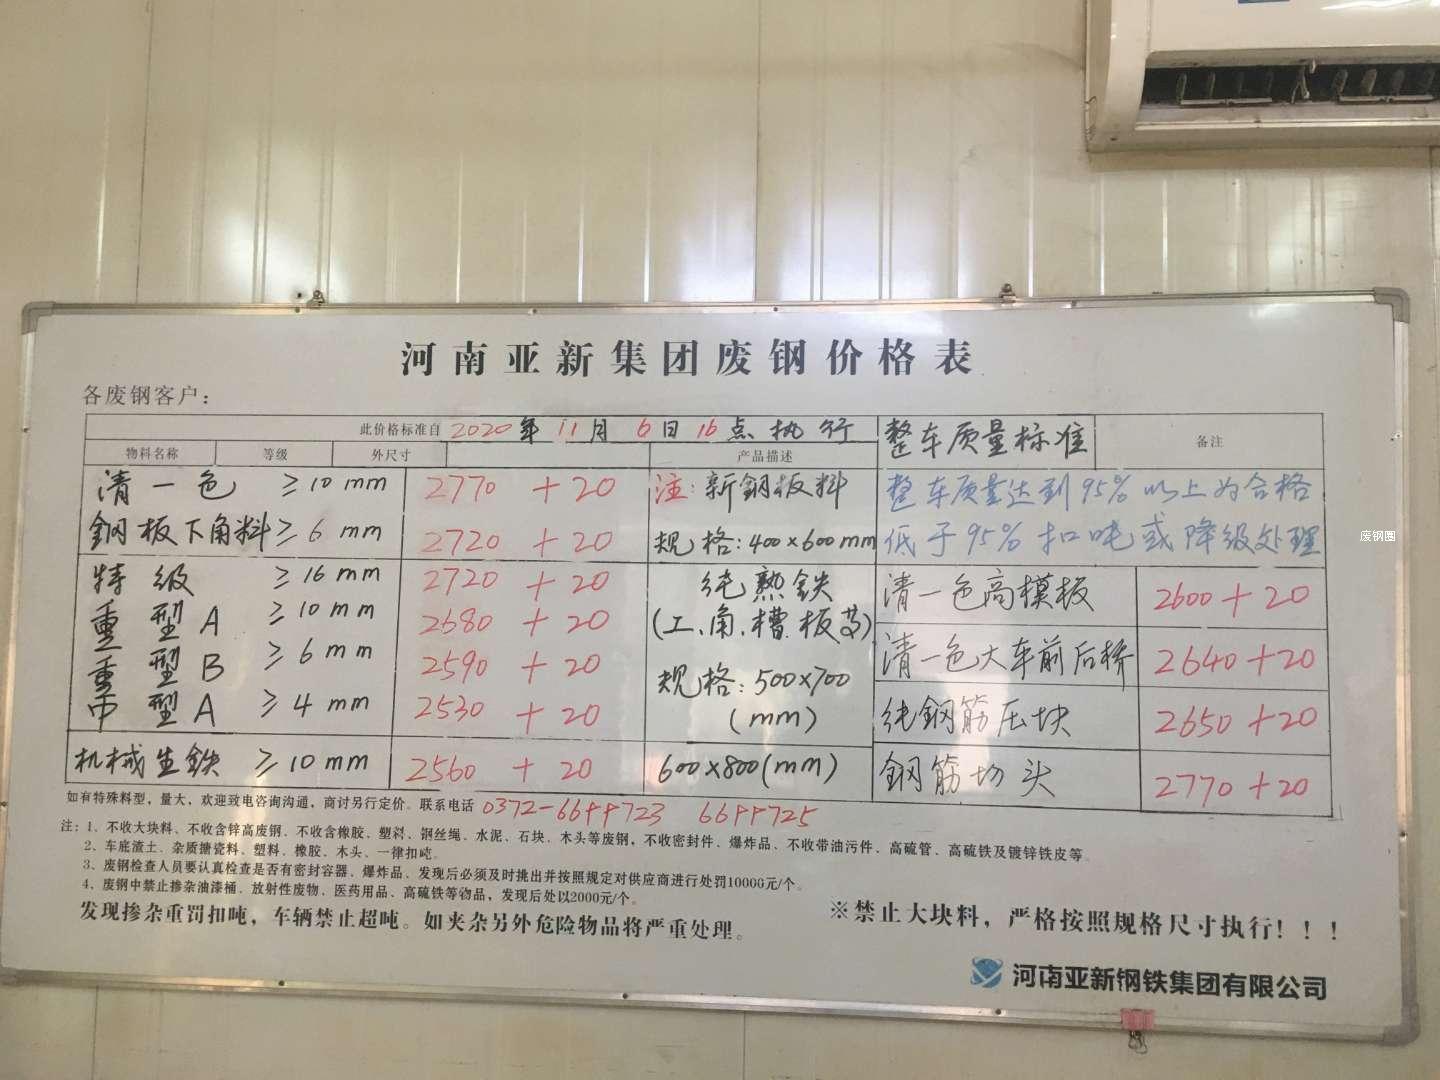 河南亚新集团废钢价格表
各废钢客户：
此价格标准自 2020年 11月 6日 16点 执行
整车质量标准
备注
物料名称 等级 外尺寸 产品描述
清一色 ≥10mm 2770 +20 注:新钢板料
整车质量达到95%以上为合格
钢板下角料 ≥6mm 2720 +20 规格:400×600mm
低于95%扣吨或降级处理
特级 ≥16mm 2720 +20 纯熟铁
清一色高模板 2600+20
重型A ≥10mm 2680 +20 (工、角、槽、板等)
重型B ≥6mm 2590 +20 规格:500×700
清一色大车前后桥 2640+20
中型A ≥4mm 2530 +20 (mm)
纯钢筋压块 2650+20
机械生铁 ≥10mm 2560 +20 600×800(mm)
钢筋切头 2770+20
如有特殊料型，量大，欢迎致电咨询沟通，商讨另行定价。联系电话 0372-6699723 6699725
注：1、不收大块料、不收含锌高废钢、不收含橡胶、塑料、钢丝绳、水泥、石块、木头等废钢，不收密封件、爆炸品、不收带油污件、高硫管、高硫铁及镀锌铁皮等。
2、车底渣土、杂质搪瓷料、塑料、橡胶、木头、一律扣吨。
3、废钢检查人员要认真检查是否有密封容器、爆炸品、发现后必须及时挑出并按照规定对供应商进行处罚10000元/个。
4、废钢中禁止掺杂油漆桶、放射性废物、医药用品、高硫铁等物品，发现后处以2000元/个。
发现掺杂重罚扣吨，车辆禁止超吨。如夹杂另外危险物品将严重处理。
※禁止大块料，严格按照规格尺寸执行！！！
河南亚新钢铁集团有限公司
废钢圈